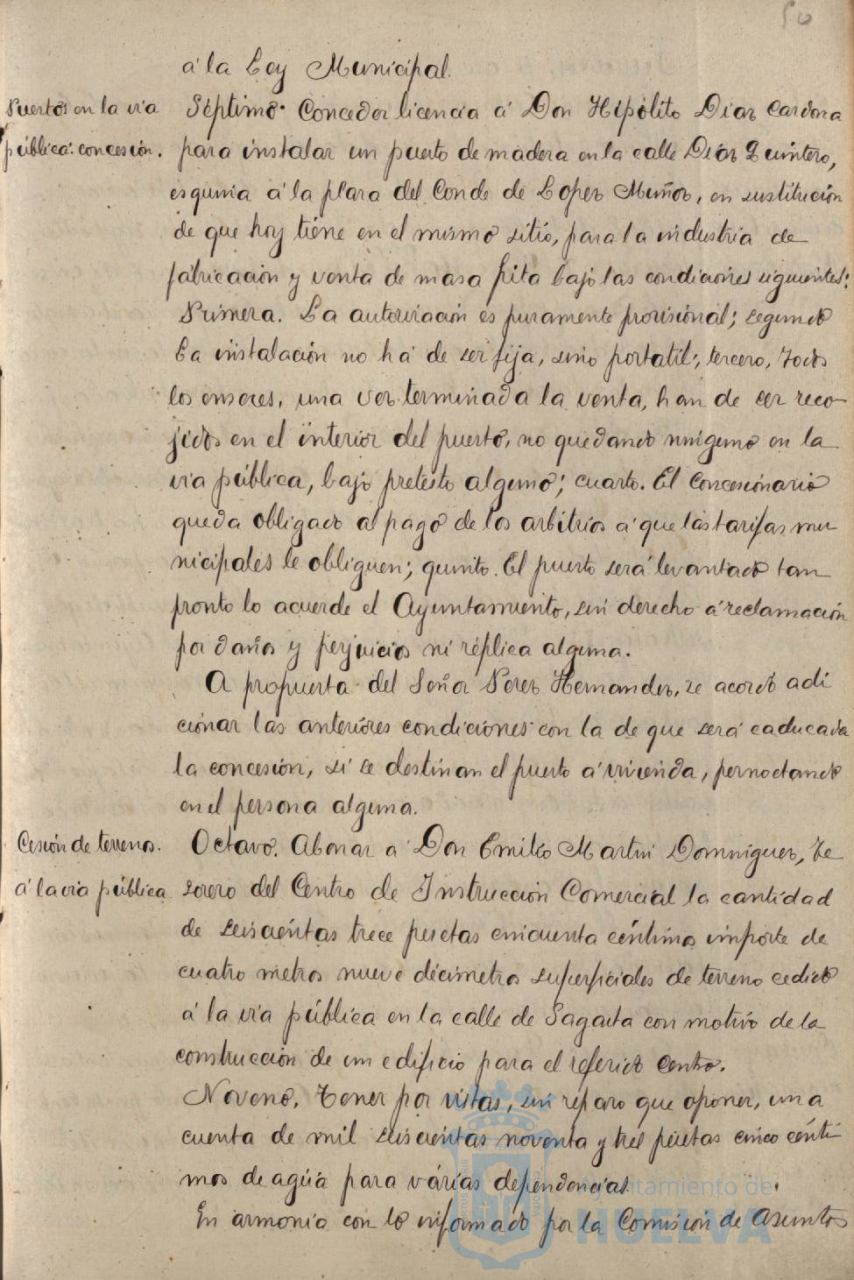 50
á la Ley Municipal.
Puestos en la via
pública: concesión.
Séptimo. Conceder licencia á Don Hipólito Diaz Cardona
para instalar un puesto de madera en la calle Diaz Quintero,
esquina á la plaza del Conde de Lopez Muñoz, en sustitución
de que hoy tiene en el mismo sitio, para la industria de
fabricación y venta de masa frita bajo las condiciones siguientes:
Primera. La autorización es puramente provisional; segundo
La instalación no há de ser fija, sino portatil; tercero, todos
los enseres, una vez terminada la venta, han de ser reco-
jidos en el interior del puesto, no quedando ninguno en la
via pública, bajo pretesto alguno; cuarto. El concesionario
queda obligado al pago de los arbitrios á que las tarifas mu
nicipales le obliguen; quinto. El puesto será levantado tan
pronto lo acuerde el Ayuntamiento, sin derecho á reclamación
por daños y perjuicios ni réplica alguna.
A propuesta del Señor Perez Hernandez, se acordó adi
cionar las anteriores condiciones con la de que será caducada
la concesión, si se destinan el puesto á vivienda, pernoctando
en el persona alguna.
Cesión de terrenos.
á la via pública
Octavo. Abonar á Don Emilio Martin Dominguez, Te
sorero del Centro de Instrucción Comercial la cantidad
de seiscientas trece pesetas cincuenta céntimos importe de
cuatro metros nueve décimetros superficiales de terreno cedido
á la via pública en la calle de Sagasta con motivo de la
construcción de un edificio para el referido Centro.
Noveno. Tener por vistas, sin réparo que oponer, una
cuenta de mil seiscientas noventa y tres pesetas cinco cénti
mos de agua para várias dependencias.
En armonia con lo informado por la Comisión de Asuntos
Ayuntamiento de
HUELVA